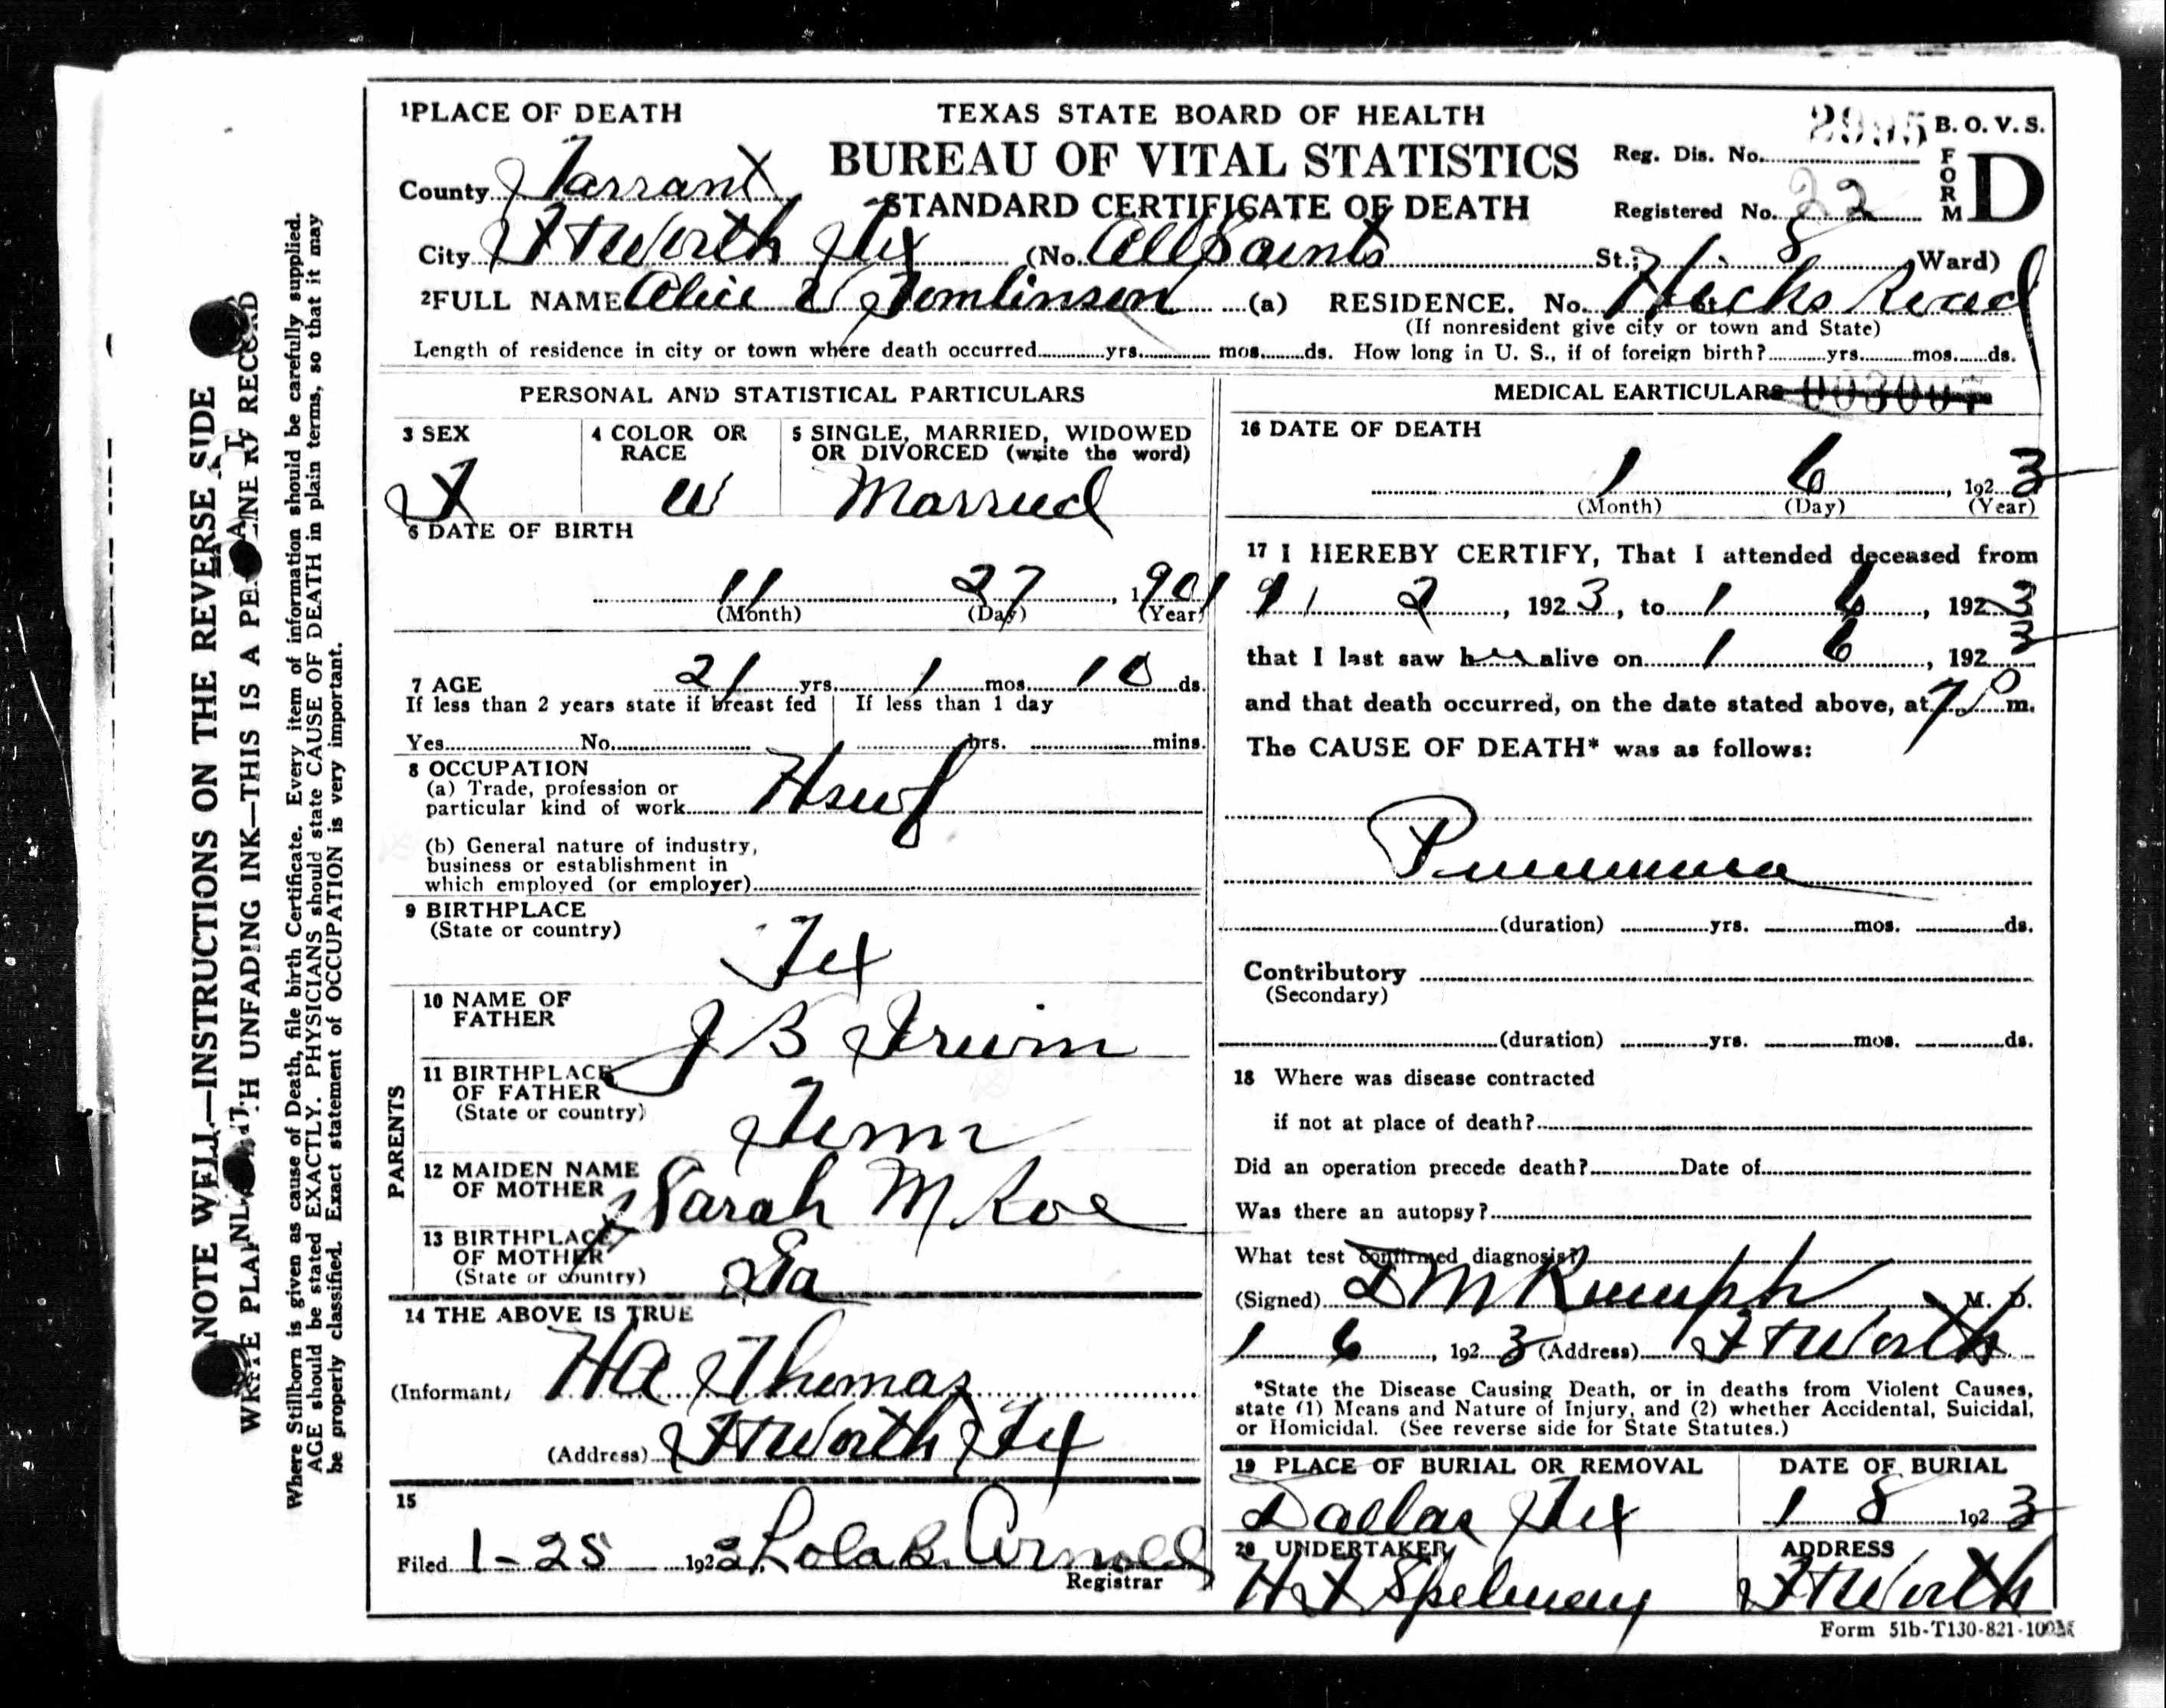 1 PLACE OF DEATH
TEXAS STATE BOARD OF HEALTH
B. O. V. S.
BUREAU OF VITAL STATISTICS
Reg. Dis. No.
FORM D
County Tarrant
STANDARD CERTIFICATE OF DEATH
Registered No. 22
City Ft Worth Tex (No. All Saints St.; 8 Ward)
2 FULL NAME Alice Tomlinson (a) RESIDENCE. No. Hicks Road
(If nonresident give city or town and State)
Length of residence in city or town where death occurred yrs. mos. ds. How long in U. S., if of foreign birth? yrs. mos. ds.
PERSONAL AND STATISTICAL PARTICULARS
3 SEX
4 COLOR OR RACE
5 SINGLE, MARRIED, WIDOWED OR DIVORCED (write the word)
F
W
Married
6 DATE OF BIRTH
11 27, 1901
(Month) (Day) (Year)
7 AGE 21 yrs. 1 mos. 10 ds.
If less than 2 years state if breast fed
If less than 1 day
Yes No
hrs. mins.
8 OCCUPATION
(a) Trade, profession or
particular kind of work Hswf
(b) General nature of industry,
business or establishment in
which employed (or employer)
9 BIRTHPLACE
(State or country)
Tex
PARENTS
10 NAME OF FATHER
J B Irwin
11 BIRTHPLACE OF FATHER
(State or country)
Tenn
12 MAIDEN NAME OF MOTHER
Sarah M Koe
13 BIRTHPLACE OF MOTHER
(State or country)
Ga
14 THE ABOVE IS TRUE
(Informant) HA Thomas
(Address) Ft Worth Tex
15
Filed 1-25 192 Lola B. Arnold
Registrar
MEDICAL EARTICULARS
16 DATE OF DEATH
1 6, 1923
(Month) (Day) (Year)
17 I HEREBY CERTIFY, That I attended deceased from
1 2, 1923, to 1 6, 1923
that I last saw her alive on 1 6, 1923
and that death occurred, on the date stated above, at 7 P m.
The CAUSE OF DEATH* was as follows:
Pneumonia
(duration) yrs. mos. ds.
Contributory
(Secondary)
(duration) yrs. mos. ds.
18 Where was disease contracted
if not at place of death?
Did an operation precede death? Date of
Was there an autopsy?
What test confirmed diagnosis?
(Signed) D M Rumph M. D.
1 6, 1923 (Address) Ft Worth
*State the Disease Causing Death, or in deaths from Violent Causes,
state (1) Means and Nature of Injury, and (2) whether Accidental, Suicidal,
or Homicidal. (See reverse side for State Statutes.)
19 PLACE OF BURIAL OR REMOVAL
DATE OF BURIAL
Dallas Tex
1 8 1923
20 UNDERTAKER
ADDRESS
H F Spelman
Ft Worth
Form 51b-T130-821-100M
NOTE WELL—INSTRUCTIONS ON THE REVERSE SIDE
UNFADING INK—THIS IS A RECORD
Where Stillborn is given as cause of Death, file birth Certificate. Every item of information should be carefully supplied.
AGE should be stated EXACTLY. PHYSICIANS should state CAUSE OF DEATH in plain terms, so that it may
be properly classified. Exact statement of OCCUPATION is very important.